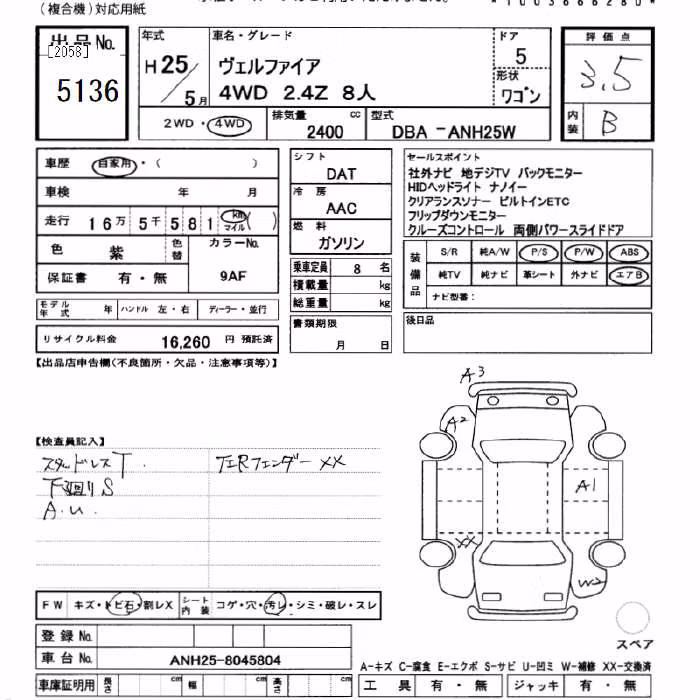 (複合機)対応用紙
*1003666280*
出品No.
[2058]
5136
年式
H25/5月
車名・グレード
ヴェルファイア
4WD 2.4Z 8人
ドア
5
形状
ワゴン
評価点
3.5
内装
B
2WD・4WD
排気量 cc
2400
型式
DBA -ANH25W
車歴 自家用・( )
車検 年 月
走行 16万5千581 km マイル ( )
色 紫 色替
カラーNo.
9AF
保証書 有・無
モデル年式 年 ハンドル 左・右 ディーラー・並行
リサイクル料金 16,260 円 預託済
シフト
DAT
冷房
AAC
燃料
ガソリン
乗車定員 8 名
積載量 kg
総重量 kg
書類期限
月 日
セールスポイント
社外ナビ 地デジTV バックモニター
HIDヘッドライト ナノイー
クリアランスソナー ビルトインETC
フリップダウンモニター
クルーズコントロール 両側パワースライドドア
装備品
S/R 純A/W P/S P/W ABS
純TV 純ナビ 革シート 外ナビ エアB
ナビ型番:
後日品
【出品店申告欄(不良箇所・欠品・注意事項等)】
【検査員記入】
スタッドレスT.
下廻りS
A.U.
左Rフェンダー XX
A3
A2
A1
XX
W2
スペア
FW キズ・トビ石・割レX
シート内装 コゲ・穴・汚レ・シミ・破レ・スレ
登録No.
車台No. ANH25-8045804
車庫証明用 長さ cm 幅 cm 高さ cm
A-キズ C-腐食 E-エクボ S-サビ U-凹ミ W-補修 XX-交換済
工具 有・無 ジャッキ 有・無